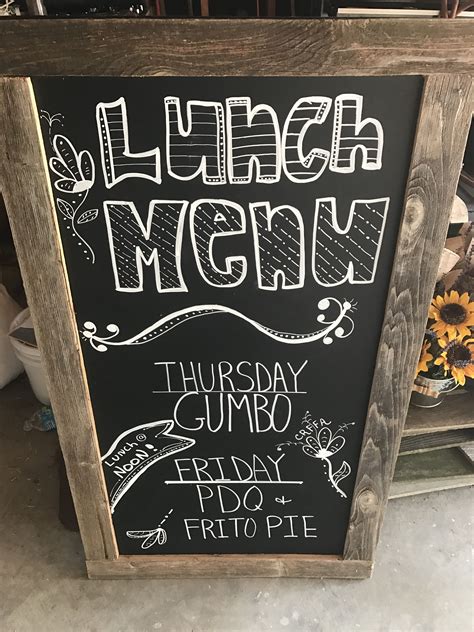 LUnCh
MenU
THURSDAY
GUMBO
CRFFA
Lunch
NOON!
FRIDAY
PDQ &
FRITO PIE